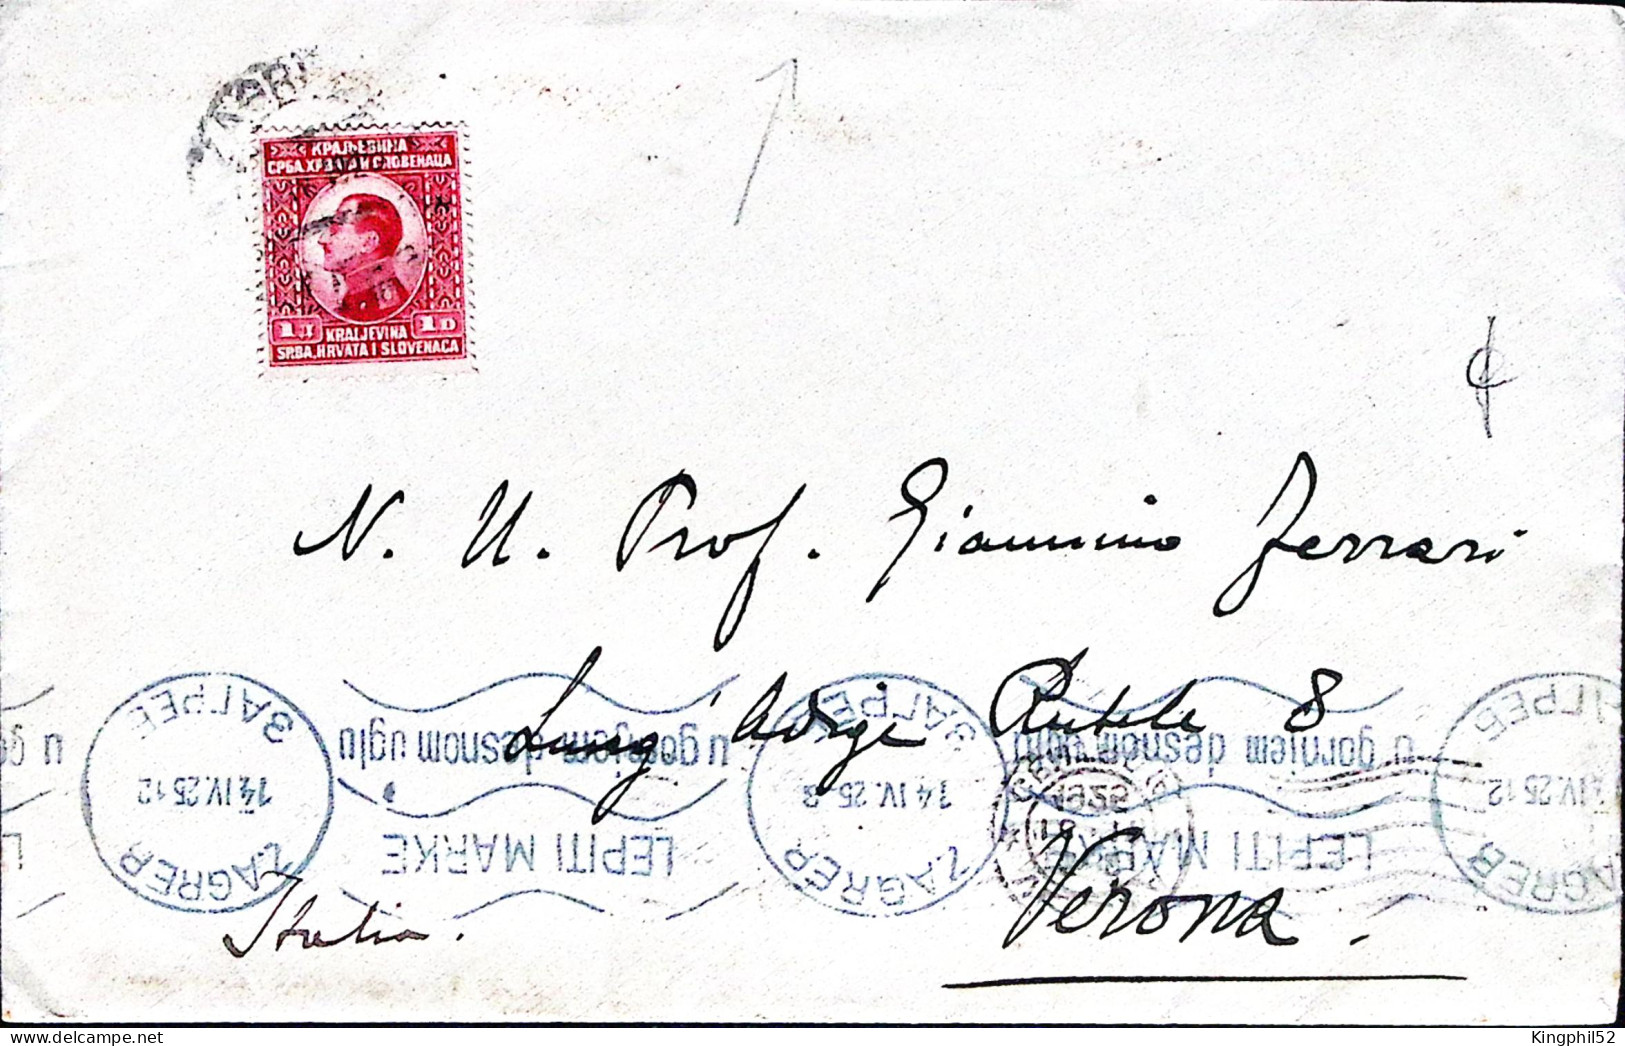 КРАЉЕВИНА
СРБА, ХРВАТА И СЛОВЕНАЦА
1 D
KRALJEVINA
SRBA, HRVATA I SLOVENACA
N. U. Prof. Giannino Ferrari
Lung'Adige Rubele 8
Verona.
Italia.
ZAGREB
14 IV. 25 12
ЗАГРЕБ
LEPITI MARKE
u gornjem desnom uglu
ZAGREB
14 IV. 25
ЗАГРЕБ
LEPITI MARKE
u gornjem desnom uglu
ZAGREB
IV. 25 12
1925
Kingphil52